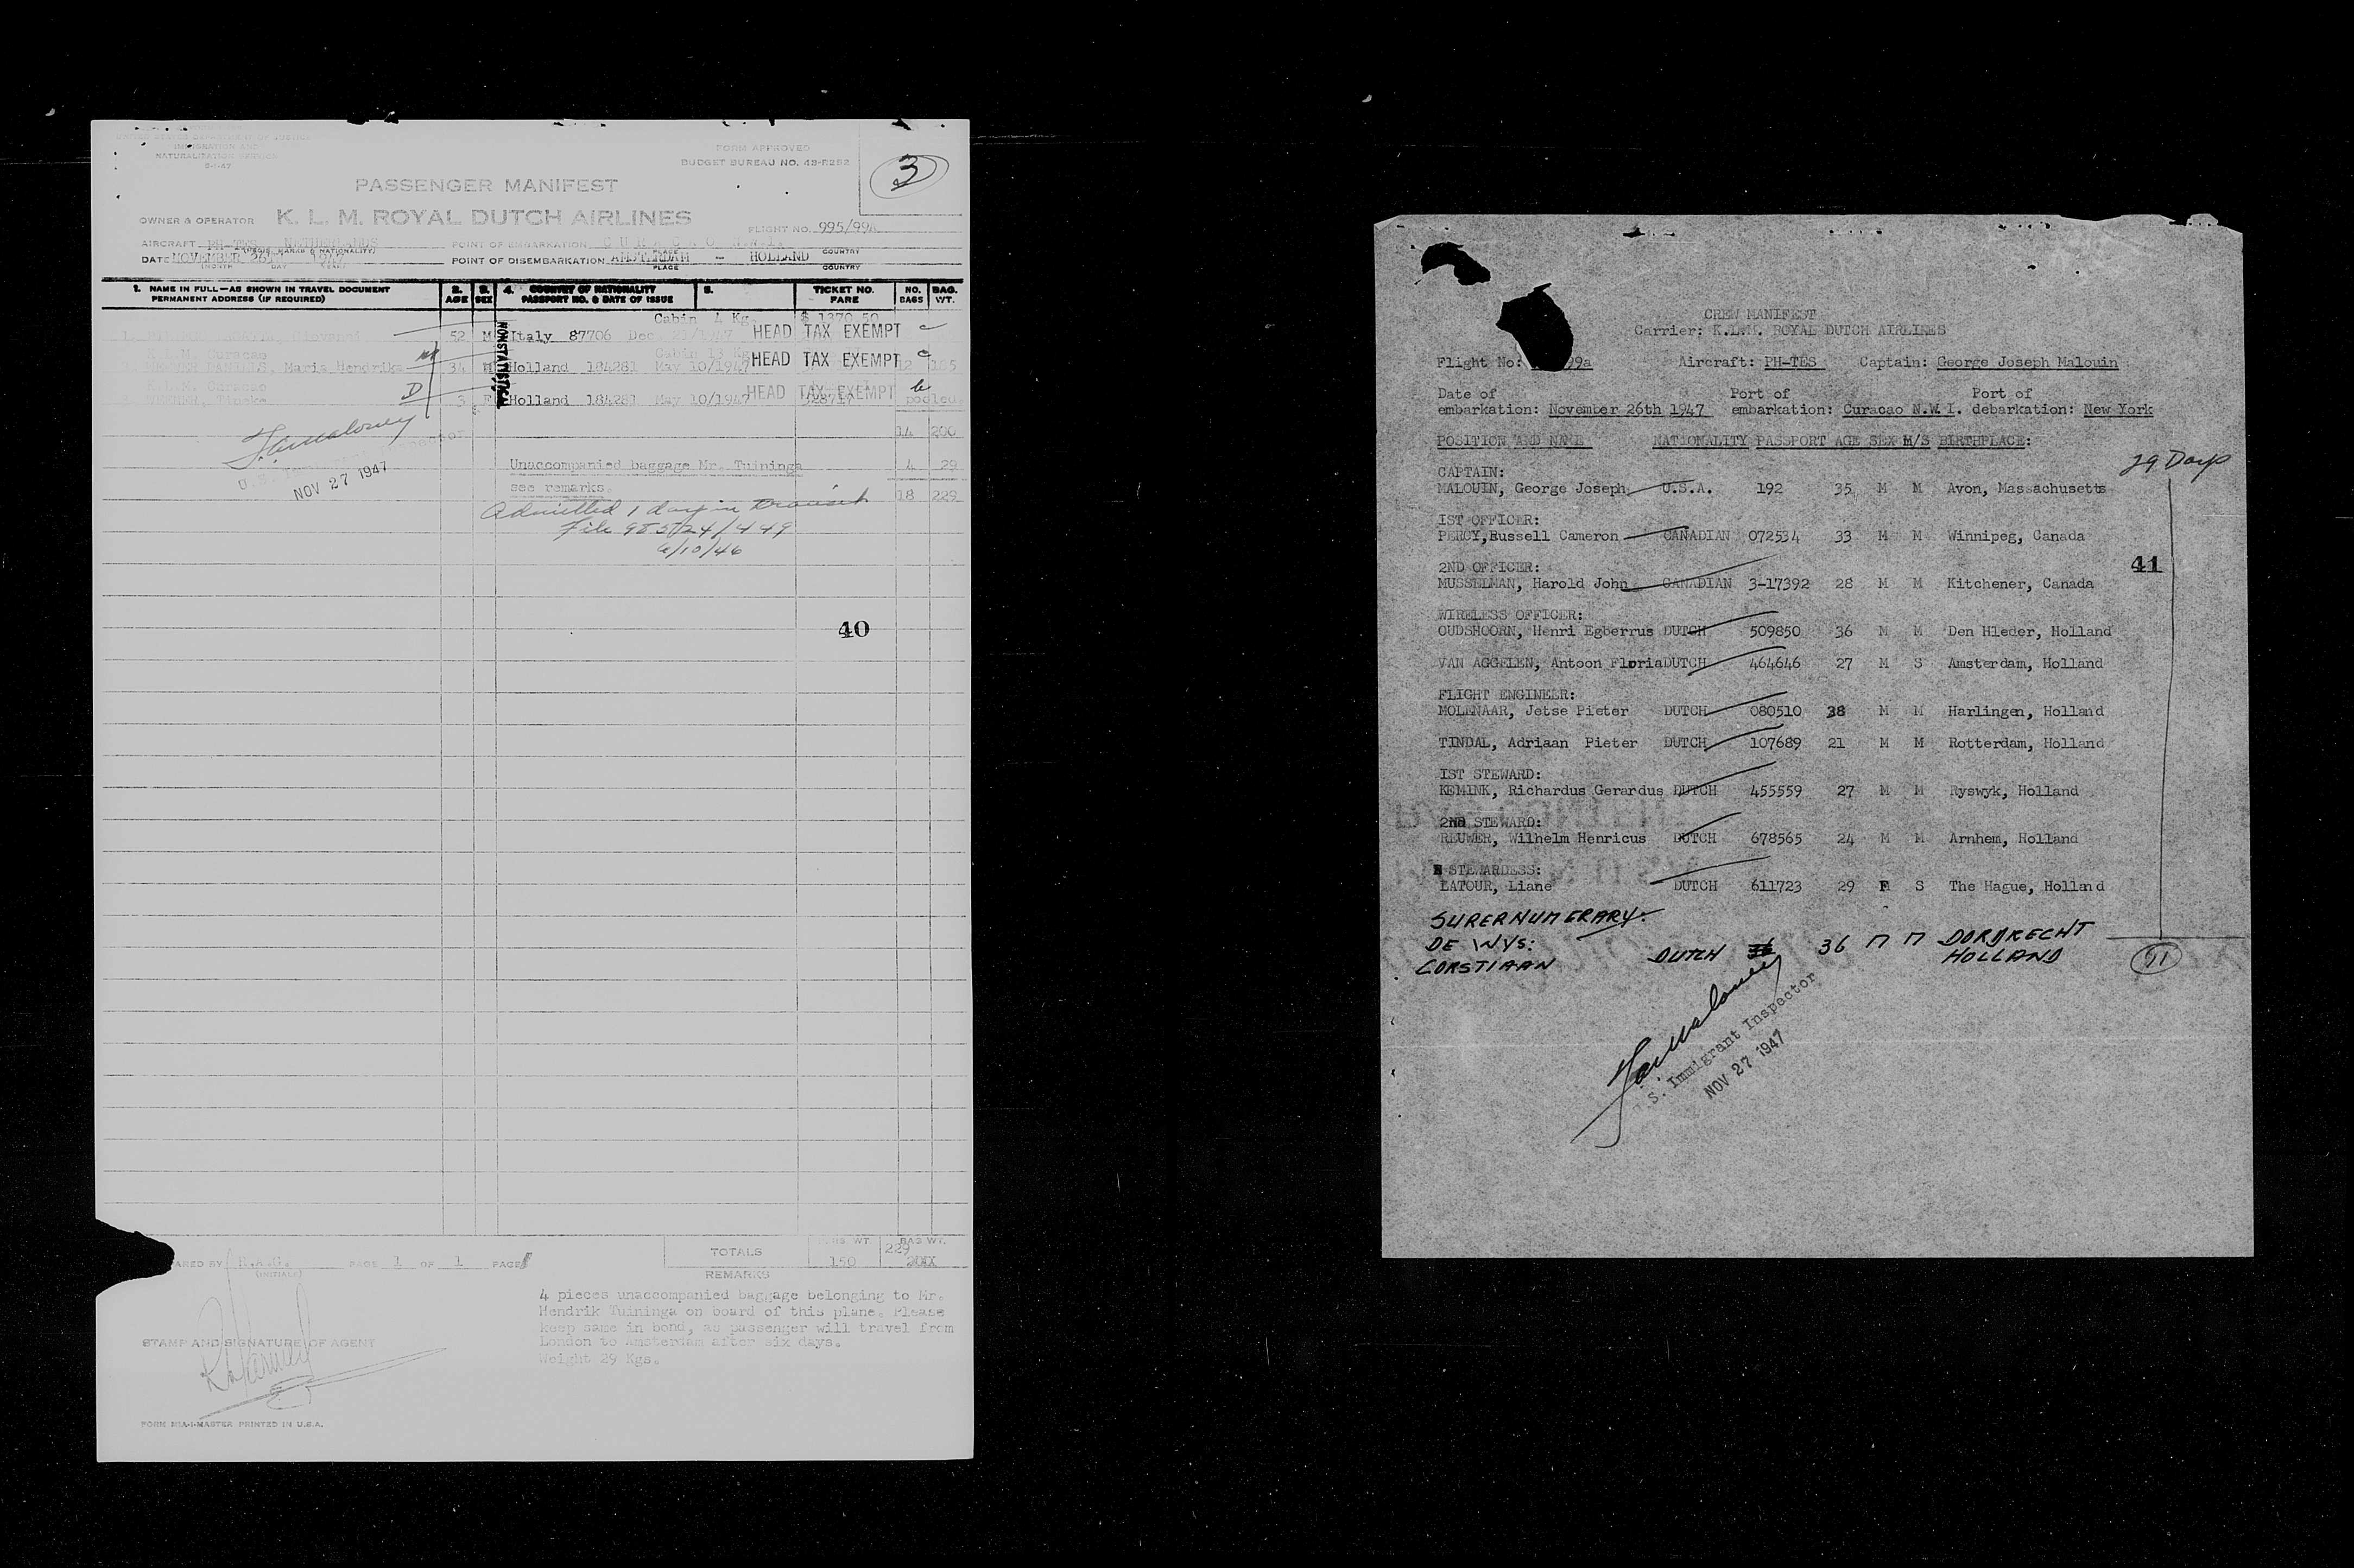 UNITED STATES DEPARTMENT OF JUSTICE
IMMIGRATION AND
NATURALIZATION SERVICE
FORM APPROVED
BUDGET BUREAU NO. 43-R252
3
PASSENGER MANIFEST
OWNER & OPERATOR K. L. M. ROYAL DUTCH AIRLINES
FLIGHT NO. 995/99A
AIRCRAFT PH-TES NETHERLANDS POINT OF EMBARKATION CURACAO N.W.I.
PLACE COUNTRY
DATE NOVEMBER 26TH 1947 POINT OF DISEMBARKATION AMSTERDAM - HOLLAND
(MONTH DAY YEAR) PLACE COUNTRY
1. NAME IN FULL—AS SHOWN IN TRAVEL DOCUMENT
PERMANENT ADDRESS (IF REQUIRED)
2. AGE
3. SEX
4. COUNTRY OF NATIONALITY
PASSPORT NO. & DATE OF ISSUE
5.
TICKET NO.
FARE
NO. BAGS
BAG. WT.
NONSTATISTICAL
Cabin 4 Kg. $ 1370.50
Giovanni 52 M Italy 87706 Dec HEAD TAX EXEMPT
K.L.M. Curacao Cabin 13 Kg
Maria Hendrika 34 Holland 184281 May 10/1947 HEAD TAX EXEMPT 12 185
K.L.M. Curacao
Tineke D 3 F Holland 184281 May 10/1947 HEAD TAX EXEMPT
14 200
U.S. Immigrant Inspector
NOV 27 1947
Unaccompanied baggage Mr. Tuininga 4 29
see remarks. 18 229
Admitted 1 day in transit
File 98524/449
6/10/46
40
PREPARED BY R.A.G. PAGE 1 OF 1 PAGES
(INITIALS)
TOTALS 150 229
REMARKS
4 pieces unaccompanied baggage belonging to Mr.
Hendrik Tuininga on board of this plane. Please
keep same in bond, as passenger will travel from
London to Amsterdam after six days.
Weight 29 Kgs.
STAMP AND SIGNATURE OF AGENT
FORM MIA-1-MASTER PRINTED IN U.S.A.
CREW MANIFEST
Carrier: K.L.M. ROYAL DUTCH AIRLINES
Flight No: 99a Aircraft: PH-TES Captain: George Joseph Malouin
Date of Port of Port of
embarkation: November 26th 1947 embarkation: Curacao N.W.I. debarkation: New York
POSITION AND NAME NATIONALITY PASSPORT AGE SEX M/S BIRTHPLACE:
29 Days
CAPTAIN:
MALOUIN, George Joseph U.S.A. 192 35 M M Avon, Massachusetts
IST OFFICER:
PERCY,Russell Cameron CANADIAN 072534 33 M M Winnipeg, Canada
41
2ND OFFICER:
MUSSELMAN, Harold John CANADIAN 3-17392 28 M M Kitchener, Canada
WIRELESS OFFICER:
OUDSHOORN, Henri Egberrus DUTCH 509850 36 M M Den Hleder, Holland
VAN AGGELEN, Antoon Floria DUTCH 464646 27 M S Amsterdam, Holland
FLIGHT ENGINEER:
MOLENAAR, Jetse Pieter DUTCH 080510 38 M M Harlingen, Holland
TINDAL, Adriaan Pieter DUTCH 107689 21 M M Rotterdam, Holland
IST STEWARD:
KEMINK, Richardus Gerardus DUTCH 455559 27 M M Ryswyk, Holland
2ND STEWARD:
REUWER, Wilhelm Henricus DUTCH 678565 24 M M Arnhem, Holland
STEWARDESS:
LATOUR, Liane DUTCH 611723 29 F S The Hague, Holland
SUPERNUMERARY.
DE WYS: DUTCH 36 M M DORDRECHT
CORSTIAAN HOLLAND
11
U.S. Immigrant Inspector
NOV 27 1947